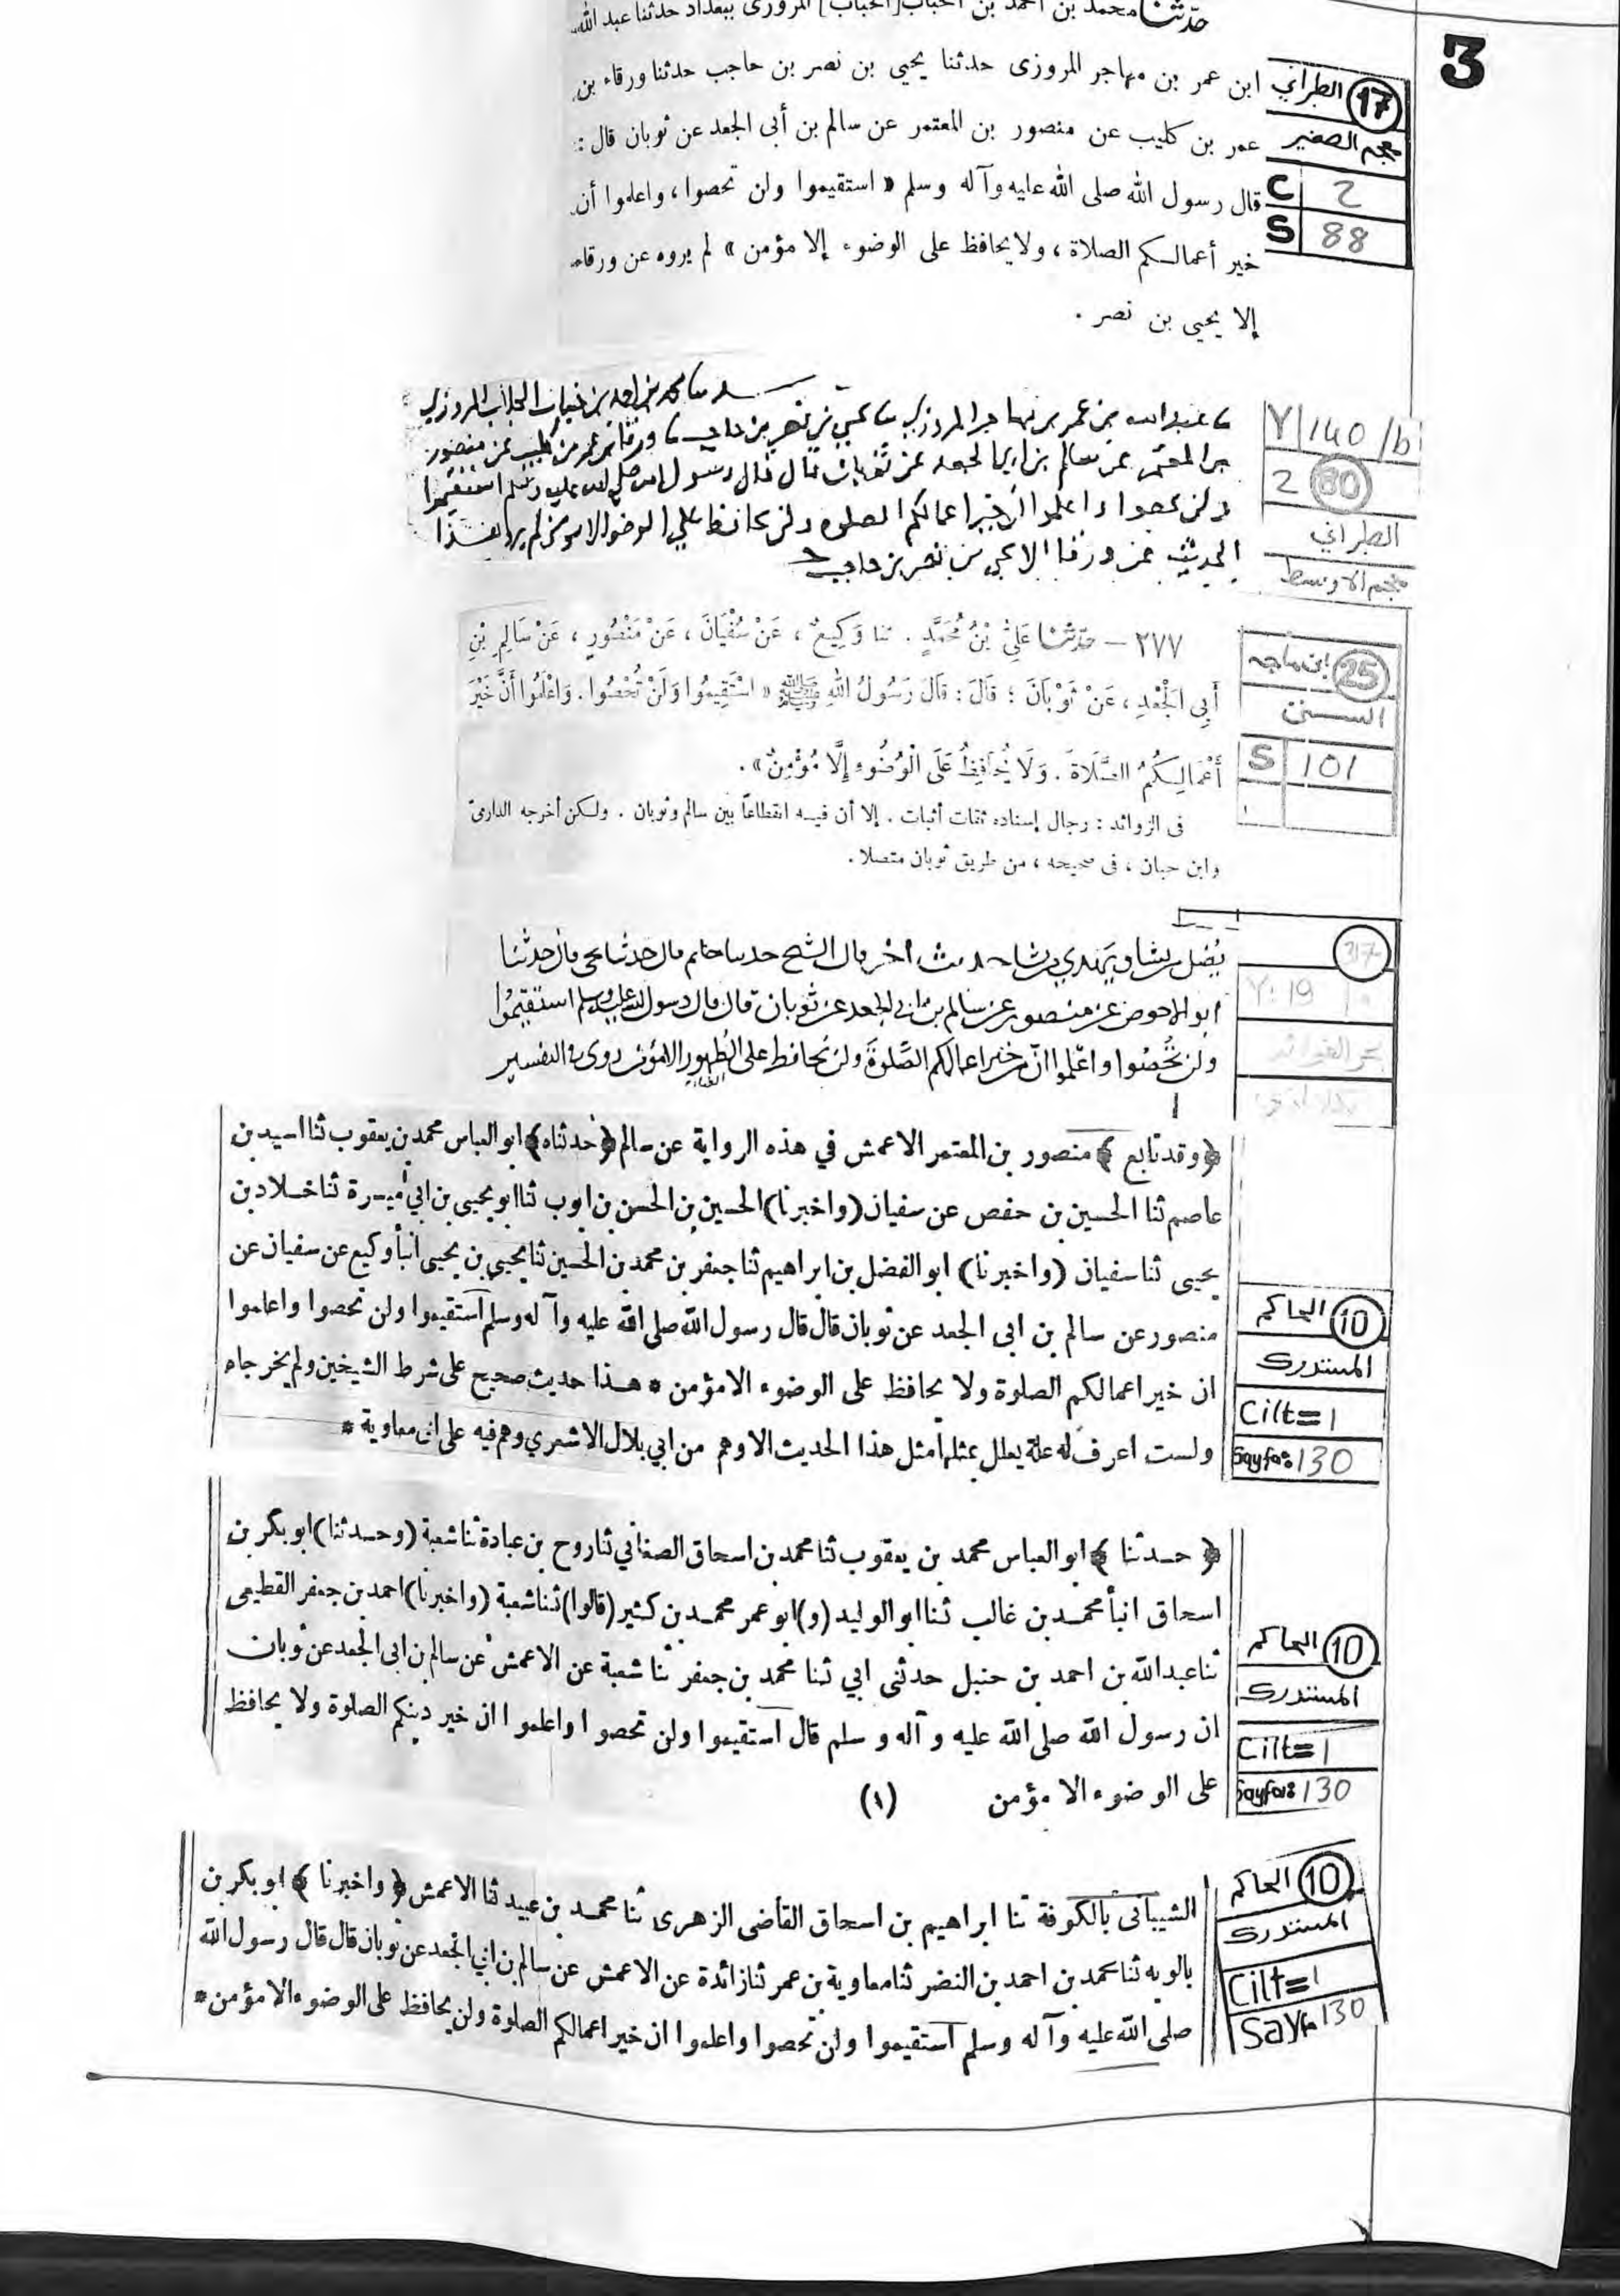 3
حدثنا محمد بن أحمد بن المروزى ببغداد حدثنا عبد الله
17 الطبراني
معجم الصغير
C 2
S 88
ابن عمر بن مهاجر المروزى حدثنا يحيى بن نصر بن حاجب حدثنا ورقاء بن
عمر بن كليب عن منصور بن المعتمر عن سالم بن أبى الجعد عن ثوبان قال :
قال رسول الله صلى الله عليه وآله وسلم « استقيموا ولن تحصوا ، واعلموا أن
خير أعمالكم الصلاة ، ولا يحافظ على الوضوء إلا مؤمن » لم يروه عن ورقاء
إلا يحيى بن نصر .
Y 140/b
2 80
الطبراني
معجم الاوسط
المروزي
عبدالله بن عمر بن مهاجر المروزي يحيى بن نصر بن حاجب ورقا بن عمر بن كليب عن منصور
بن المعتمر عن سالم بن ابي الجعد عن ثوبان قال قال رسول الله صلى الله عليه وسلم استقيموا
ولن تحصوا واعلموا ان خير اعمالكم الصلوه ولن يحافظ على الوضو الا مومن لم يرو هذا
الحديث عن ورقا الا يحيى بن نصر بن حاجب
25 ابن ماجه
السنن
S 101
٢٧٧ – حدثنا عَلِيُّ بْنُ مُحَمَّدٍ . ثنا وَكِيعٌ ، عَنْ سُفْيَانَ ، عَنْ مَنْصُورٍ ، عَنْ سَالِمِ بْنِ
أَبِي الْجَعْدِ ، عَنْ ثَوْبَانَ ؛ قَالَ : قَالَ رَسُولُ اللهِ ﷺ « اسْتَقِيمُوا وَلَنْ تُحْصُوا . وَاعْلَمُوا أَنَّ خَيْرَ
أَعْمَالِكُمُ الصَّلَاةَ . وَلَا يُحَافِظُ عَلَى الْوُضُوءِ إِلَّا مُؤْمِنٌ » .
فى الزوائد : رجال إسناده ثقات أثبات . إلا أن فيه انقطاعا بين سالم وثوبان . ولكن أخرجه الدارمى
وابن حبان ، فى صحيحه ، من طريق ثوبان متصلا .
317
Y: 19
بحر الفوائد
يُضل من يشا ويهدي من يشا حديث اخر قال الشيخ حدثنا حاتم قال حدثنا يحيى قال حدثنا
ابو الاحوص عن منصور عن سالم بن ابي الجعد عن ثوبان قال قال رسول الله صلى الله عليه وسلم استقيمُوا
ولن تُحصُوا واعلموا انّ من خير اعمالكم الصَّلوةَ ولن يُحافظ على الطُهور الا مؤمن روى في التفسير
10 الحاكم
المستدرك
Cilt=1
Sayfa: 130
﴿ وقد تابع ﴾ منصور بن المعتمر الاعمش في هذه الرواية عن سالم ﴿ حدثناه ﴾ ابو العباس محمد بن يعقوب ثنا اسيد بن
عاصم ثنا الحسين بن حفص عن سفيان (واخبرنا) الحسين بن الحسن بن ايوب ثنا ابو يحيى بن ابي ميسرة ثنا خلاد بن
يحيى ثنا سفيان (واخبرنا) ابو الفضل بن ابراهيم ثنا جعفر بن محمد بن الحسين ثنا يحيى بن يحيى انبأ وكيع عن سفيان عن
منصور عن سالم بن ابى الجعد عن ثوبان قال قال رسول الله صلى الله عليه وآله وسلم استقيموا ولن تحصوا واعلموا
ان خير اعمالكم الصلوة ولا يحافظ على الوضوء الا مؤمن * هذا حديث صحيح على شرط الشيخين ولم يخرجاه
ولست اعرف له علة يعلل بمثلها مثل هذا الحديث الا وهم من ابي بلال الاشعري وهم فيه على ابى معاوية *
10 الحاكم
المستدرك
Cilt=1
Sayfa: 130
﴿ حدثنا ﴾ ابو العباس محمد بن يعقوب ثنا محمد بن اسحاق الصغاني ثنا روح بن عبادة ثنا شعبة (وحدثنا) ابو بكر بن
اسحاق انبأ محمد بن غالب ثنا ابو الوليد (و) ابو عمر محمد بن كثير (قالوا) ثنا شعبة (واخبرنا) احمد بن جعفر القطيعى
ثنا عبد الله بن احمد بن حنبل حدثنى ابي ثنا محمد بن جعفر ثنا شعبة عن الاعمش عن سالم بن ابى الجعد عن ثوبان
ان رسول الله صلى الله عليه وآله وسلم قال استقيموا ولن تحصوا واعلموا ان خير دينكم الصلوة ولا يحافظ
على الوضوء الا مؤمن (١)
10 الحاكم
المستدرك
Cilt=1
Sayfa 130
الشيبانى بالكوفة ثنا ابراهيم بن اسحاق القاضى الزهرى ثنا محمد بن عبيد ثنا الاعمش ﴿ واخبرنا ﴾ ابو بكر بن
بالويه ثنا محمد بن احمد بن النضر ثنا معاوية بن عمر ثنا زائدة عن الاعمش عن سالم بن ابي الجعد عن ثوبان قال قال رسول الله
صلى الله عليه وآله وسلم استقيموا ولن تحصوا واعلموا ان خير اعمالكم الصلوة ولن يحافظ على الوضوء الا مؤمن *